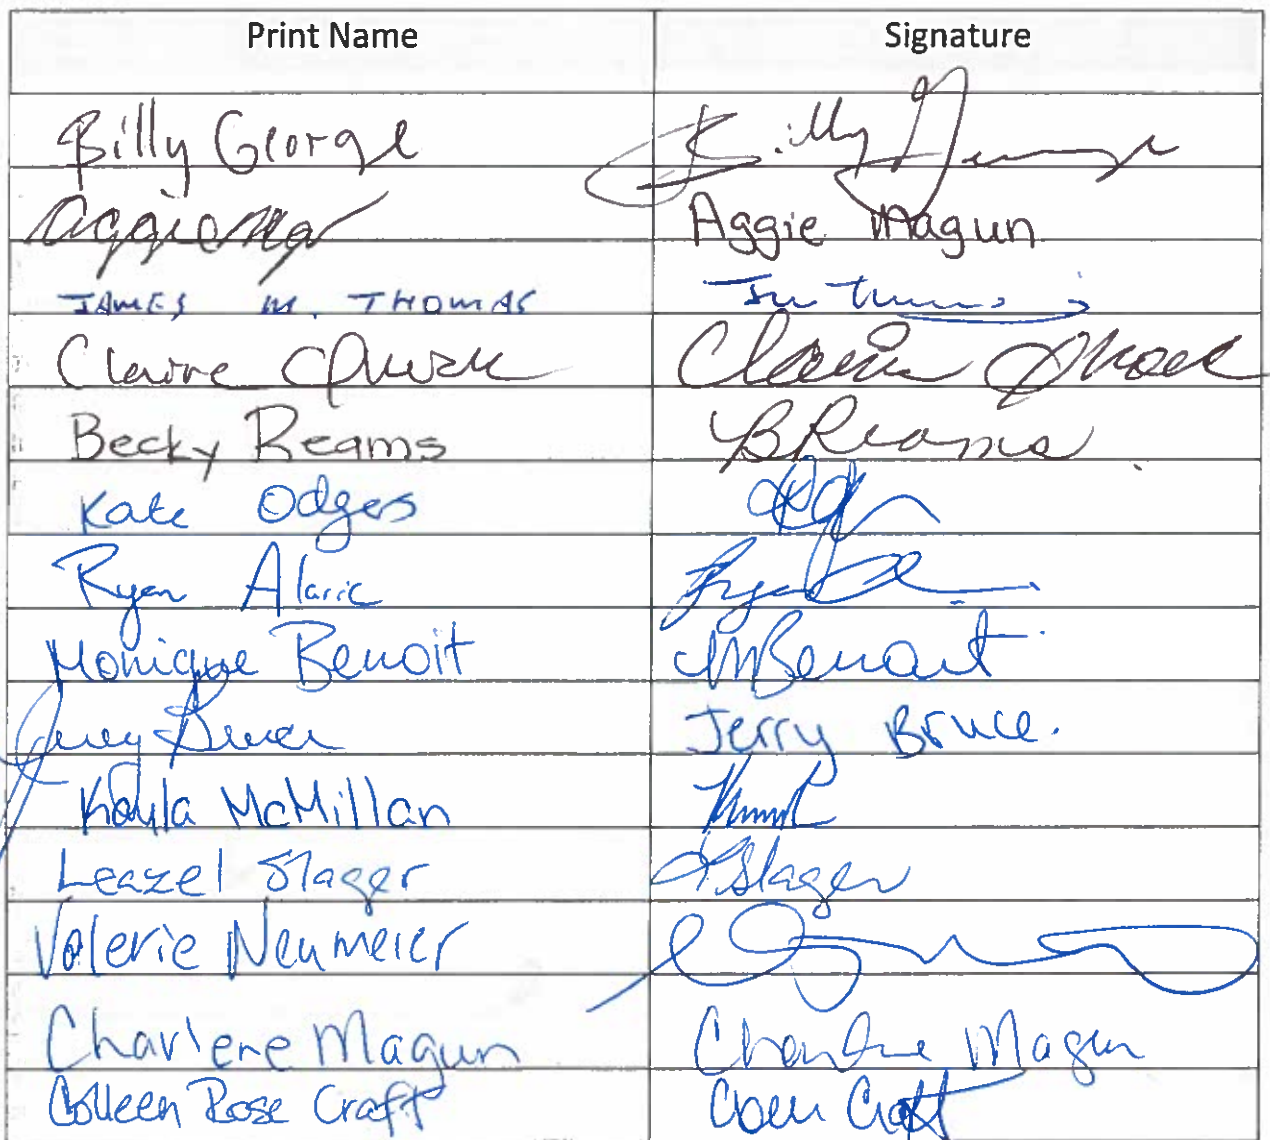 Print Name Signature
Billy George Billy George
Aggie Aggie Magun
JAMES M. THOMAS
Claire Claire
Becky Reams B Reams
Kate Odgers
Ryan Alaric Ryan
Monique Benoit M Benoit
Jerry Bruce Jerry Bruce.
Kayla McMillan
Leazel Slager L Slager
Valerie Neumeier
Charlene Magun Charlene Magun
Colleen Rose Craft Craft